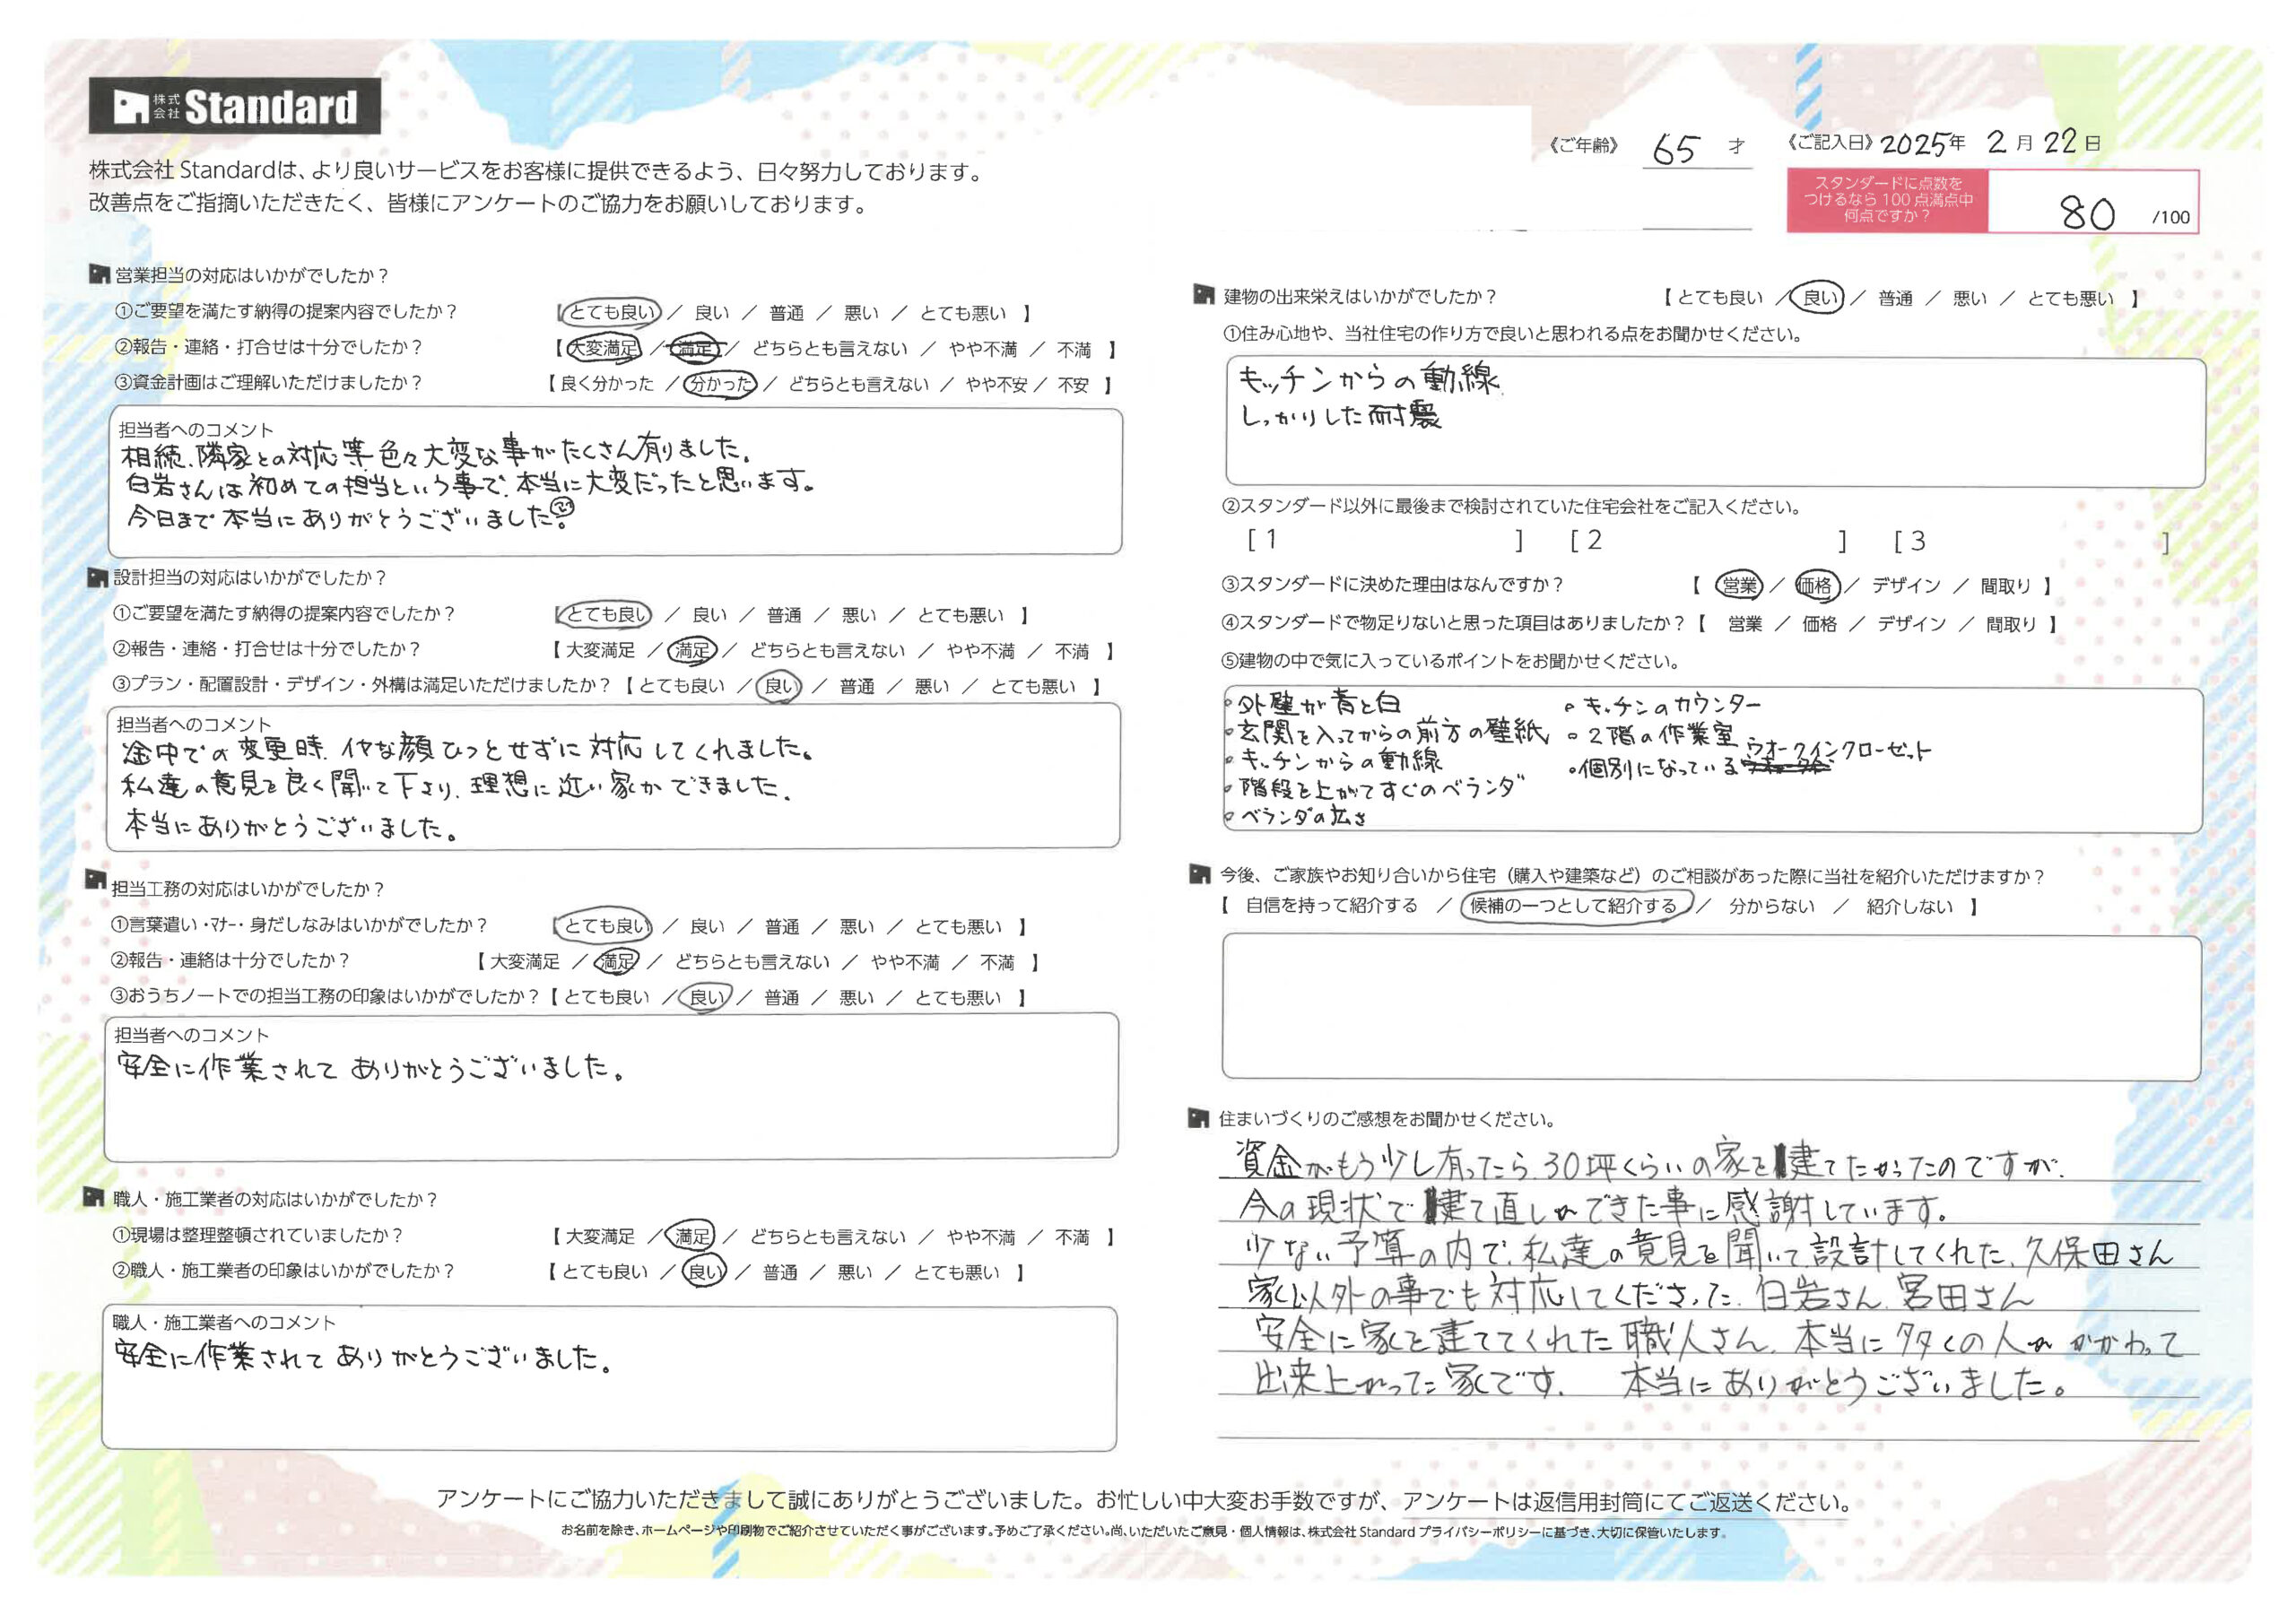 株式会社 Standard
株式会社 Standardは、より良いサービスをお客様に提供できるよう、日々努力しております。
改善点をご指摘いただきたく、皆様にアンケートのご協力をお願いしております。
《ご年齢》 65 才 《ご記入日》 2025年 2月 22日
スタンダードに点数を
つけるなら 100 点満点中
何点ですか?
80 /100
営業担当の対応はいかがでしたか?
①ご要望を満たす納得の提案内容でしたか? 【 とても良い / 良い / 普通 / 悪い / とても悪い 】
②報告・連絡・打合せは十分でしたか? 【 大変満足 / 満足 / どちらとも言えない / やや不満 / 不満 】
③資金計画はご理解いただけましたか? 【 良く分かった / 分かった / どちらとも言えない / やや不安 / 不安 】
担当者へのコメント
相続、隣家との対応等 色々大変な事がたくさん有りました。
白岩さんは初めての担当という事で、本当に大変だったと思います。
今日まで本当にありがとうございました。
設計担当の対応はいかがでしたか?
①ご要望を満たす納得の提案内容でしたか? 【 とても良い / 良い / 普通 / 悪い / とても悪い 】
②報告・連絡・打合せは十分でしたか? 【 大変満足 / 満足 / どちらとも言えない / やや不満 / 不満 】
③プラン・配置設計・デザイン・外構は満足いただけましたか? 【 とても良い / 良い / 普通 / 悪い / とても悪い 】
担当者へのコメント
途中での変更時、イヤな顔ひっとせずに対応してくれました。
私達の意見を良く聞いて下さり、理想に近い家ができました。
本当にありがとうございました。
担当工務の対応はいかがでしたか?
①言葉遣い・マナー・身だしなみはいかがでしたか? 【 とても良い / 良い / 普通 / 悪い / とても悪い 】
②報告・連絡は十分でしたか? 【 大変満足 / 満足 / どちらとも言えない / やや不満 / 不満 】
③おうちノートでの担当工務の印象はいかがでしたか? 【 とても良い / 良い / 普通 / 悪い / とても悪い 】
担当者へのコメント
安全に作業されて ありがとうございました。
職人・施工業者の対応はいかがでしたか?
①現場は整理整頓されていましたか? 【 大変満足 / 満足 / どちらとも言えない / やや不満 / 不満 】
②職人・施工業者の印象はいかがでしたか? 【 とても良い / 良い / 普通 / 悪い / とても悪い 】
職人・施工業者へのコメント
安全に作業されて ありがとうございました。
建物の出来栄えはいかがでしたか? 【 とても良い / 良い / 普通 / 悪い / とても悪い 】
①住み心地や、当社住宅の作り方で良いと思われる点をお聞かせください。
キッチンからの動線
しっかりした耐震
②スタンダード以外に最後まで検討されていた住宅会社をご記入ください。
[ 1 ] [ 2 ] [ 3 ]
③スタンダードに決めた理由はなんですか? 【 営業 / 価格 / デザイン / 間取り 】
④スタンダードで物足りないと思った項目はありましたか? 【 営業 / 価格 / デザイン / 間取り 】
⑤建物の中で気に入っているポイントをお聞かせください。
・外壁が青と白
・玄関を入ってからの前方の壁紙
・キッチンからの動線
・階段を上がてすぐのベランダ
・ベランダの広さ
・キッチンのカウンター
・2階の作業室
・個別になっているウオークインクローゼット
今後、ご家族やお知り合いから住宅（購入や建築など）のご相談があった際に当社を紹介いただけますか?
【 自信を持って紹介する / 候補の一つとして紹介する / 分からない / 紹介しない 】
住まいづくりのご感想をお聞かせください。
資金がもう少し有ったら、30坪くらいの家を建てたかったのですが、
今の現状で建て直しができた事に感謝しています。
少ない予算の内で、私達の意見を聞いて設計してくれた、久保田さん
家以外の事でも対応してくださった、白岩さん、宮田さん
安全に家を建ててくれた職人さん、本当に多くの人がかかわって
出来上がった家です。 本当にありがとうございました。
アンケートにご協力いただきまして誠にありがとうございました。お忙しい中大変お手数ですが、アンケートは返信用封筒にてご返送ください。
お名前を除き、ホームページや印刷物でご紹介させていただく事がございます。予めご了承ください。尚、いただいたご意見・個人情報は、株式会社 Standard プライバシーポリシーに基づき、大切に保管いたします。